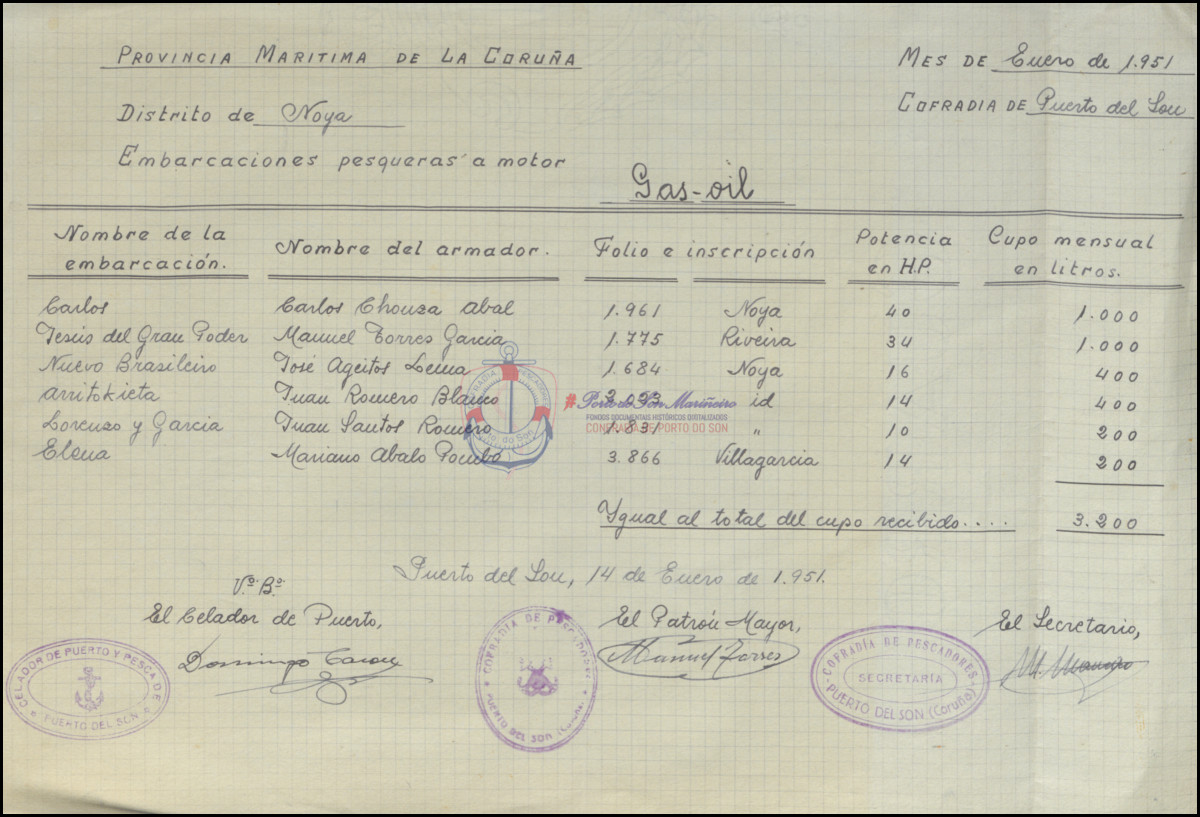 PROVINCIA MARITIMA DE LA CORUÑA
MES DE Enero de 1.951
Distrito de Noya
COFRADIA DE Puerto del Son
Embarcaciones pesqueras a motor
Gas-oil
Nombre de la embarcación. Nombre del armador. Folio e inscripción Potencia en H.P. Cupo mensual en litros.
Carlos Carlos Chouza Abal 1.961 Noya 40 1.000
Jesús del Gran Poder Manuel Torres Garcia 1.775 Riveira 34 1.000
Nuevo Brasileiro José Ageitos Lema 1.684 Noya 16 400
Arritokieta Juan Romero Blanco id 14 400
Lorenzo y Garcia Juan Santos Romero 1.831 " 10 200
Elena Mariano Abalo 3.866 Villagarcia 14 200
# Porto do Son Mariñeiro
FONDOS DOCUMENTAIS HISTÓRICOS DIGITALIZADOS
CONFRARÍA DE PORTO DO SON
Ygual al total del cupo recibido.... 3.200
Puerto del Son, 14 de Enero de 1.951.
Vº. Bº.
El Celador de Puerto,
El Patrón Mayor,
El Secretario,
Domingo
Manuel Torres
CELADOR DE PUERTO Y PESCA DE
PUERTO DEL SON
COFRADIA DE PESCADORES
PUERTO DEL SON (Coruña)
COFRADÍA DE PESCADORES
SECRETARÍA
PUERTO DEL SON (Coruña)